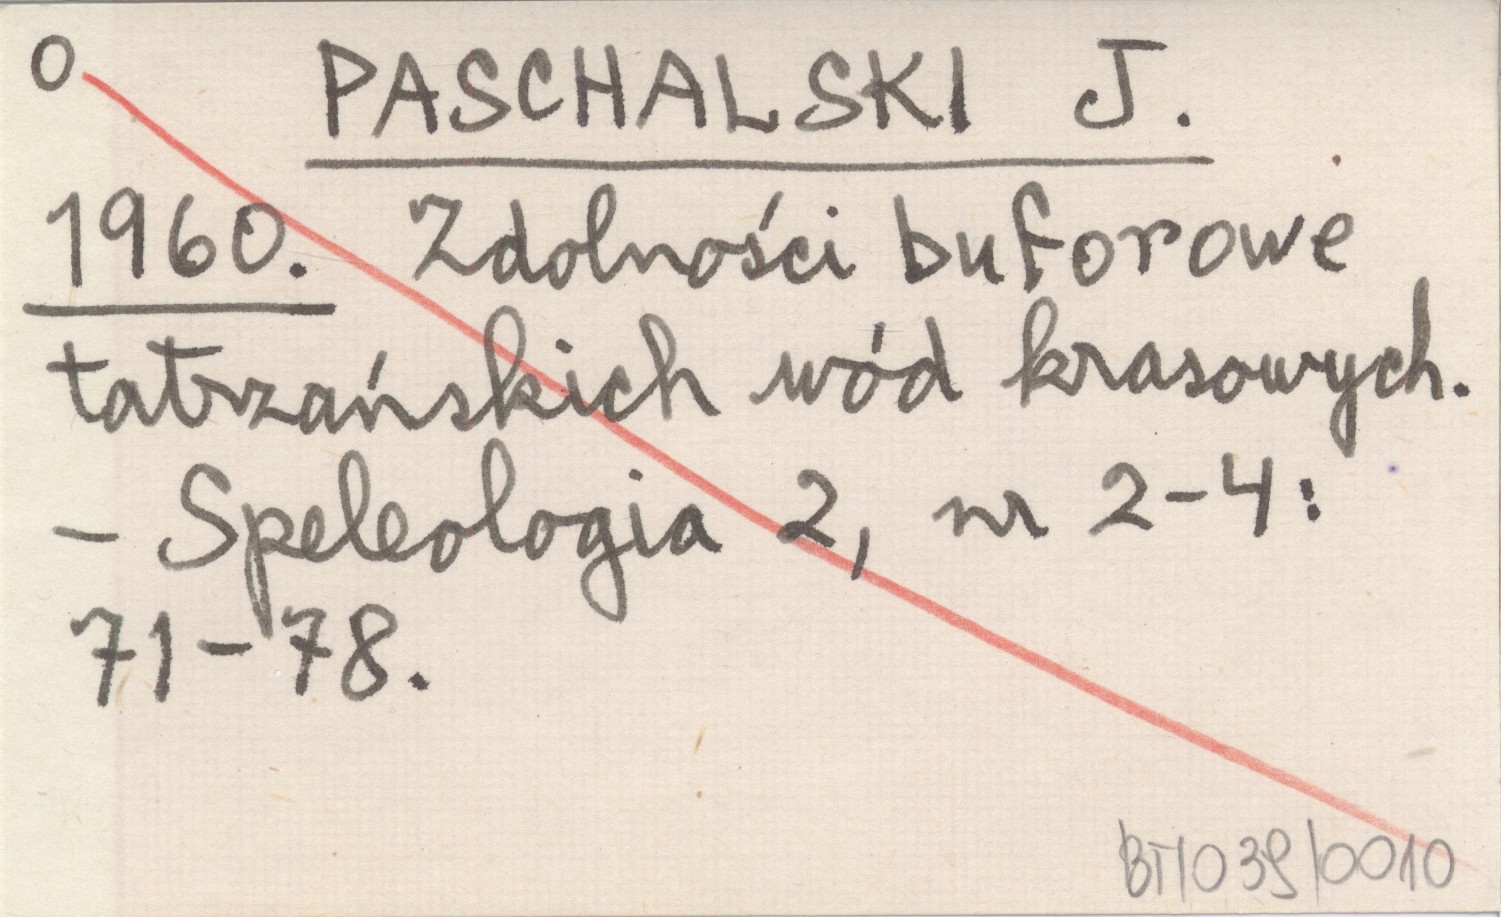 0
PASCHALSKI J.
1960. Zdolności buforowe
tatrzańskich wód krasowych.
- Speleologia 2, nr 2-4:
71-78.
BT/039/0010